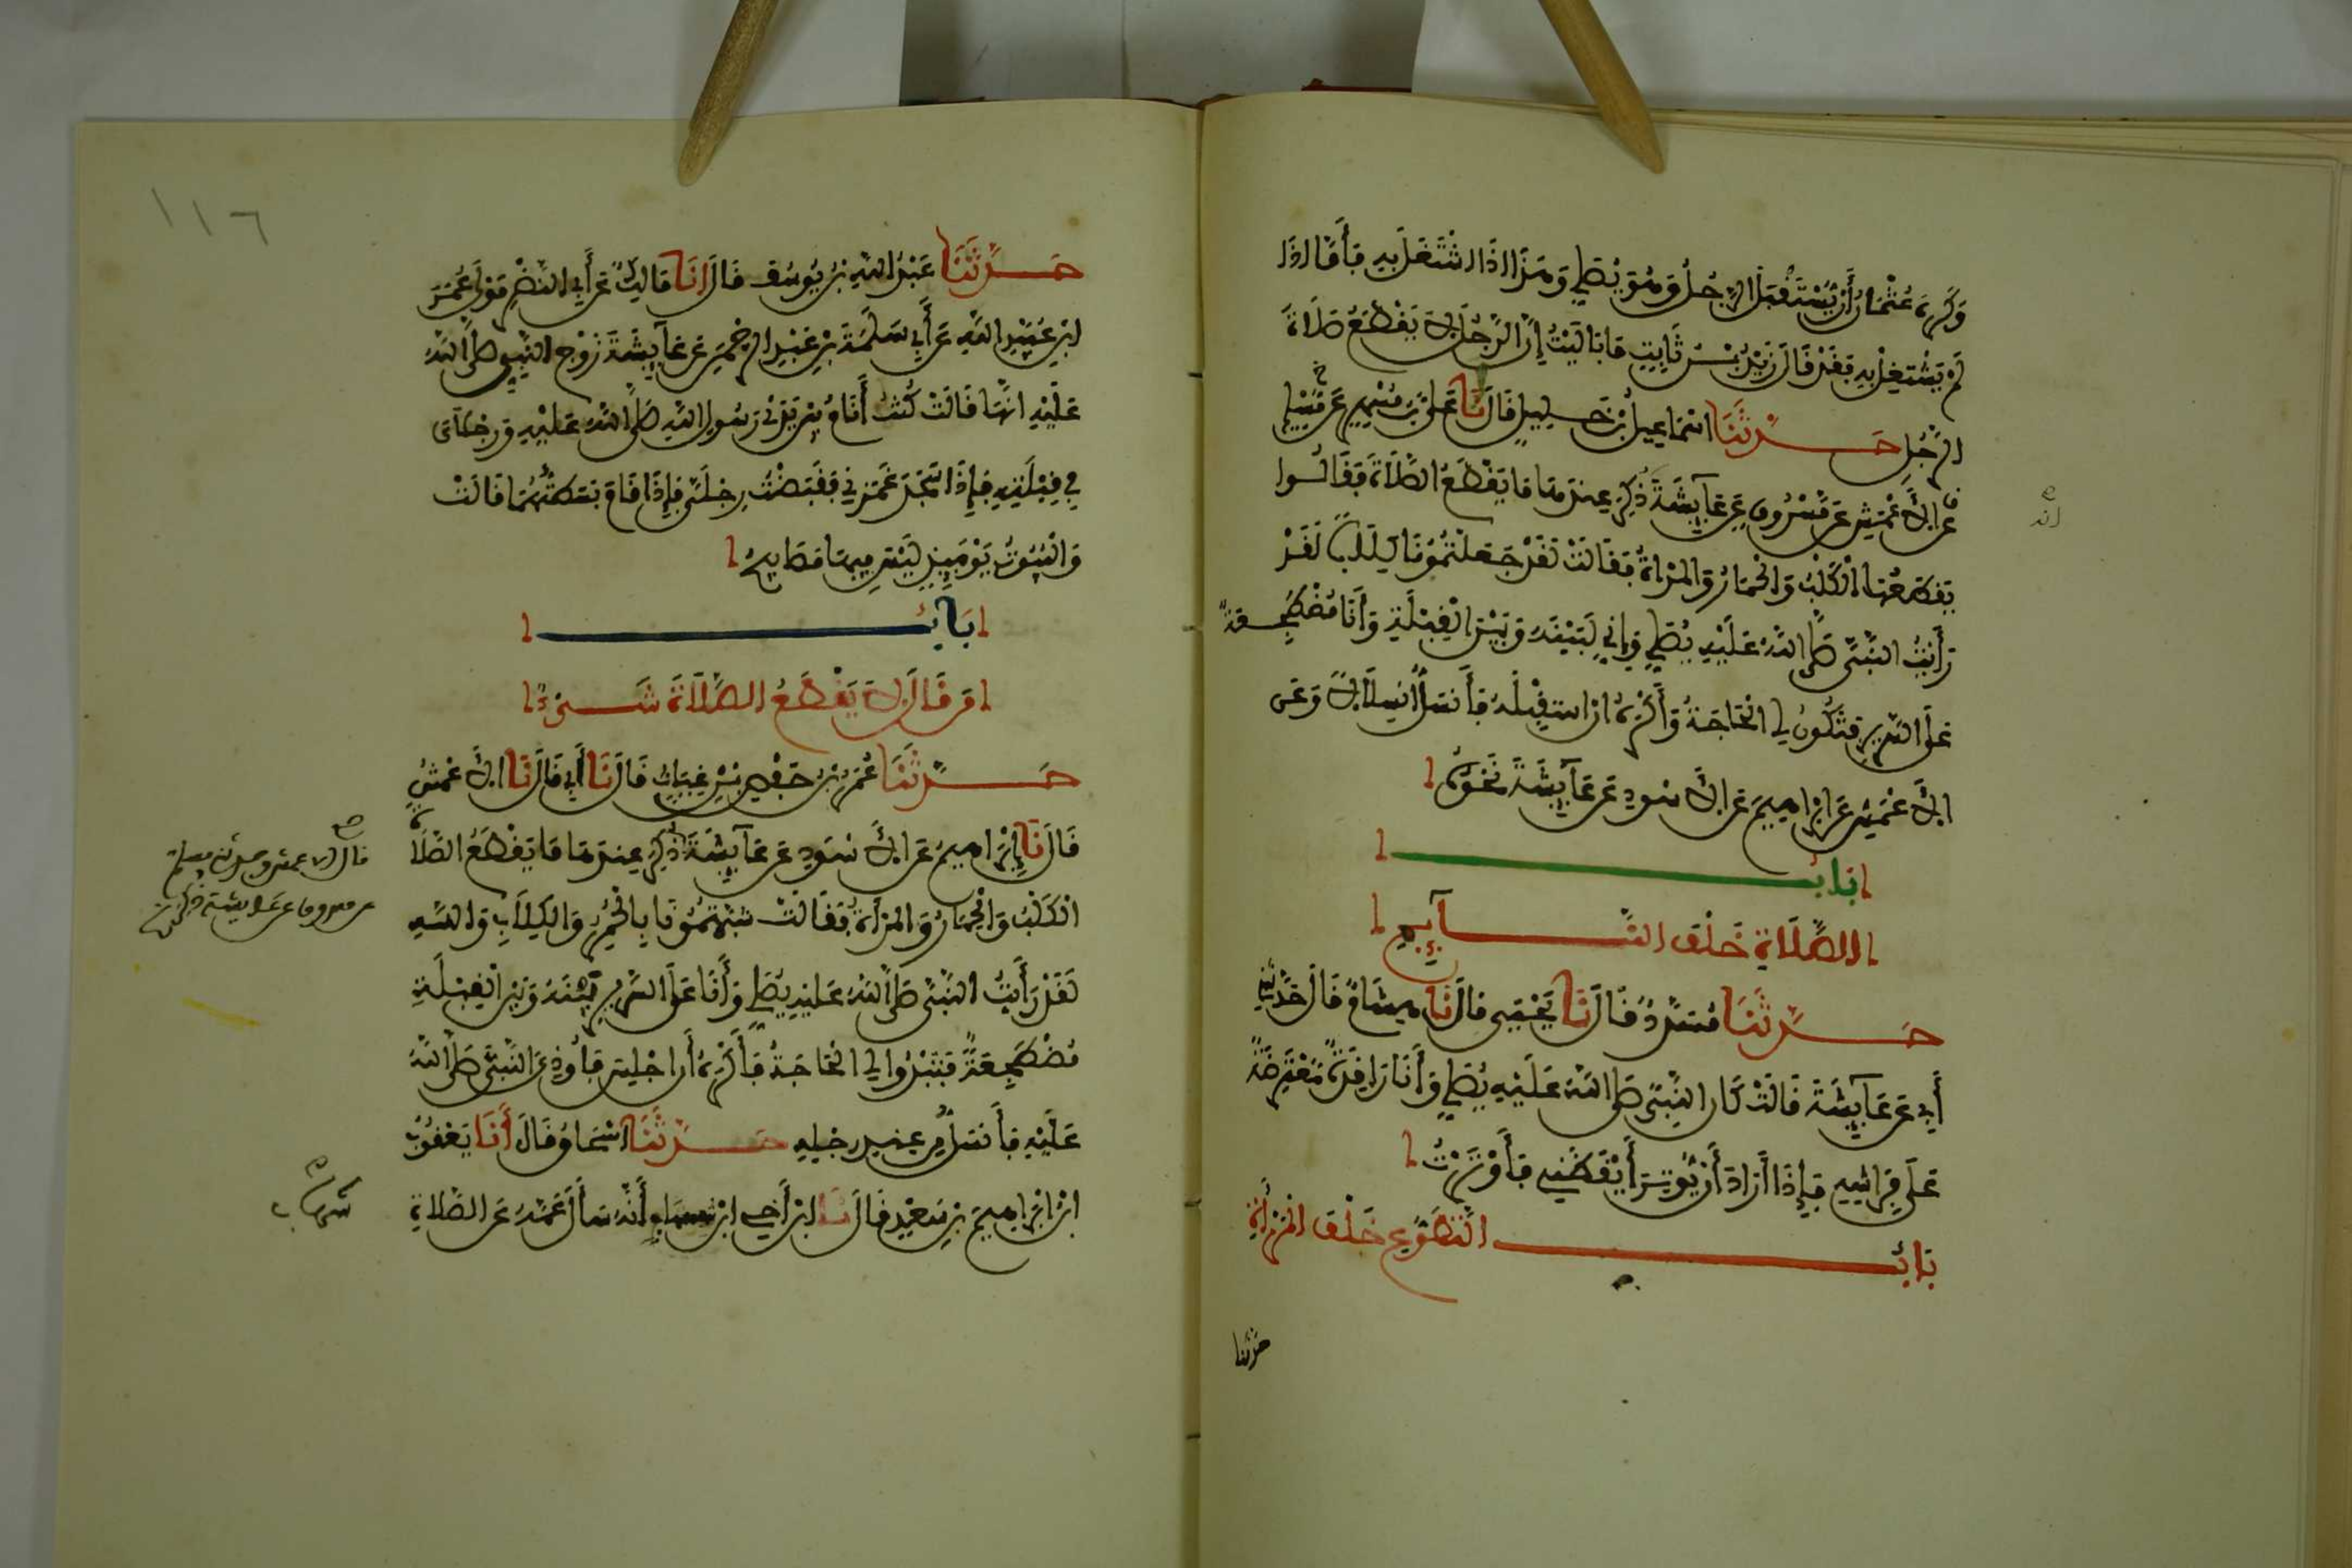 وَكَرِهَ عُثْمَانُ أَنْ يُسْتَقْبَلَ الرَّجُلُ وَهُوَ يُصَلِّي وَهَذَا إِذَا اشْتَغَلَ بِهِ فَأَمَّا إِذَا
لَمْ يَشْتَغِلْ بِهِ فَقَدْ قَالَ زَيْدُ بْنُ ثَابِتٍ مَا بَالَيْتُ إِنَّ الرَّجُلَ لَا يَقْطَعُ صَلَاةَ
الرَّجُلِ حَدَّثَنَا اسْمَاعِيلُ بْنُ خَلِيلٍ قَالَ نَا عَلِيُّ بْنُ مُسْهِرٍ
عَنِ الْأَعْمَشِ عَنْ مَسْرُوقٍ عَنْ عَائِشَةَ ذُكِرَ عِنْدَهَا مَا يَقْطَعُ الصَّلَاةَ فَقَالُوا
يَقْطَعُهَا الْكَلْبُ وَالْحِمَارُ وَالْمَرْأَةُ فَقَالَتْ لَقَدْ جَعَلْتُمُونَا كِلَابًا لَقَدْ
رَأَيْتُ النَّبِيَّ صَلَّى اللهُ عَلَيْهِ يُصَلِّي وَإِنِّي لَبَيْنَهُ وَبَيْنَ الْقِبْلَةِ وَأَنَا مُضْطَجِعَةٌ
عَلَى السَّرِيرِ فَتَكُونُ لِي الْحَاجَةُ وَأَكْرَهُ أَنْ أَسْتَقْبِلَهُ فَأَنْسَلُّ انْسِلَالًا وَعَنِ
الْأَعْمَشِ عَنْ إِبْرَاهِيمَ عَنِ الْأَسْوَدِ عَنْ عَائِشَةَ نَحْوَهُ
بَابُ
الصَّلَاةِ خَلْفَ النَّائِمِ
حَدَّثَنَا مُسَدَّدٌ قَالَ نَا يَحْيَى قَالَ نَا هِشَامٌ قَالَ حَدَّثَنِي
أَبِي عَنْ عَائِشَةَ قَالَتْ كَانَ النَّبِيُّ صَلَّى اللهُ عَلَيْهِ يُصَلِّي وَأَنَا رَاقِدَةٌ مُعْتَرِضَةٌ
عَلَى فِرَاشِهِ فَإِذَا أَرَادَ أَنْ يُوتِرَ أَيْقَظَنِي فَأَوْتَرْتُ
بَابُ التَّطَوُّعِ خَلْفَ الْمَرْأَةِ
حدثنا
١١٦
حَدَّثَنَا عَبْدُ اللهِ بْنُ يُوسُفَ قَالَ أَنَا مَالِكٌ عَنْ أَبِي النَّضْرِ مَوْلَى عُمَرَ
ابْنِ عُبَيْدِ اللهِ عَنْ أَبِي سَلَمَةَ بْنِ عَبْدِ الرَّحْمَنِ عَنْ عَائِشَةَ زَوْجِ النَّبِيِّ صَلَّى اللهُ
عَلَيْهِ أَنَّهَا قَالَتْ كُنْتُ أَنَامُ بَيْنَ يَدَيْ رَسُولِ اللهِ صَلَّى اللهُ عَلَيْهِ وَرِجْلَايَ
فِي قِبْلَتِهِ فَإِذَا سَجَدَ غَمَزَنِي فَقَبَضْتُ رِجْلَيَّ فَإِذَا قَامَ بَسَطْتُهُمَا قَالَتْ
وَالْبُيُوتُ يَوْمَئِذٍ لَيْسَ فِيهَا مَصَابِيحُ
بَابُ
مَنْ قَالَ لَا يَقْطَعُ الصَّلَاةَ شَيْءٌ
حَدَّثَنَا عُمَرُ بْنُ حَفْصِ بْنِ غِيَاثٍ قَالَ نَا أَبِي قَالَ نَا الْأَعْمَشُ
قَالَ نَا إِبْرَاهِيمُ عَنِ الْأَسْوَدِ عَنْ عَائِشَةَ ذُكِرَ عِنْدَهَا مَا يَقْطَعُ الصَّلَاةَ
الْكَلْبُ وَالْحِمَارُ وَالْمَرْأَةُ فَقَالَتْ شَبَّهْتُمُونَا بِالْحُمُرِ وَالْكِلَابِ وَاللهِ
لَقَدْ رَأَيْتُ النَّبِيَّ صَلَّى اللهُ عَلَيْهِ يُصَلِّي وَأَنَا عَلَى السَّرِيرِ بَيْنَهُ وَبَيْنَ الْقِبْلَةِ
مُضْطَجِعَةً فَتَبْدُوا لِي الْحَاجَةُ فَأَكْرَهُ أَنْ أَجْلِسَ فَأُوذِيَ النَّبِيَّ صَلَّى اللهُ
عَلَيْهِ فَأَنْسَلُّ مِنْ عِنْدِ رِجْلَيْهِ حَدَّثَنَا اسْحَاقُ قَالَ أَنَا يَعْقُوبُ
ابْنُ إِبْرَاهِيمَ بْنِ سَعْدٍ قَالَ نَا ابْنُ أَخِي ابْنِ شِهَابٍ أَنَّهُ سَأَلَ عَمَّهُ عَنِ الصَّلَاةِ
قال الاعمش وحدثني مسلم
عن مسروق عن عايشة
شهاب